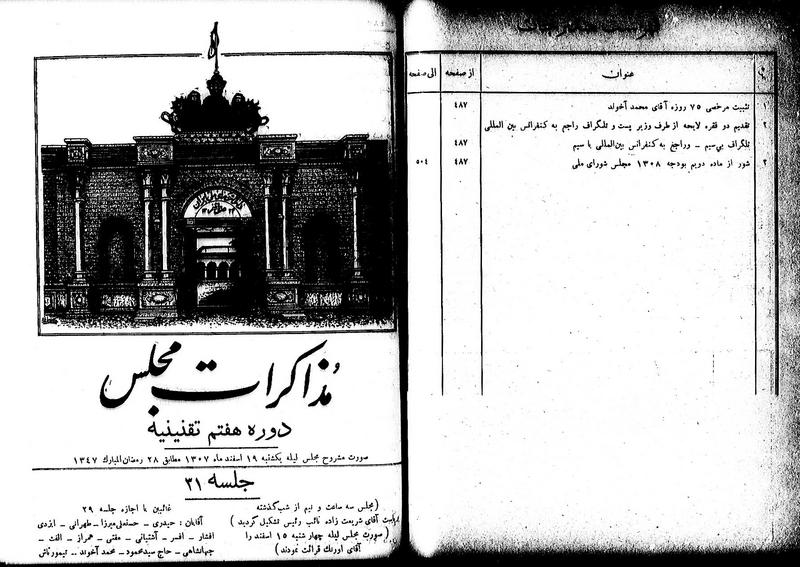 مذاکرات مجلس
دوره هفتم تقنینیه
صورت مشروح مجلس لیله یکشنبه ۱۹ اسفند ماه ۱۳۰۷ مطابق ۲۸ رمضان المبارک ۱۳۴۷
جلسه ۳۱
(مجلس سه ساعت و نیم از شب گذشته
آقای شریعت زاده نائب رئیس تشکیل گردید)
(صورت مجلس لیله چهارشنبه ۱۵ اسفند را
آقای اورنگ قرائت نمودند)
غائبین با اجازه جلسه ۲۹
آقایان: حیدری – حسنعلی میرزا – طهرانی – ایزدی
افشار – افسر – آشتیانی – مفتی – همراز – الفت –
جهانشاهی – حاج سیدمحمود – محمد آخوند – تیمورتاش
عنوان از صفحه الی صفحه
۱ تثبیت مرخصی ۷۵ روزه آقای محمد آخوند ۴۸۷
۲ تقدیم دو فقره لایحه از طرف وزیر پست و تلگراف راجع به کنفرانس بین المللی
تلگراف بی‌سیم – و راجع به کنفرانس بین‌المللی با سیم ۴۸۷
۳ شور از ماده دویم بودجه ۱۳۰۸ مجلس شورای ملی ۴۸۷ ۵۰۴